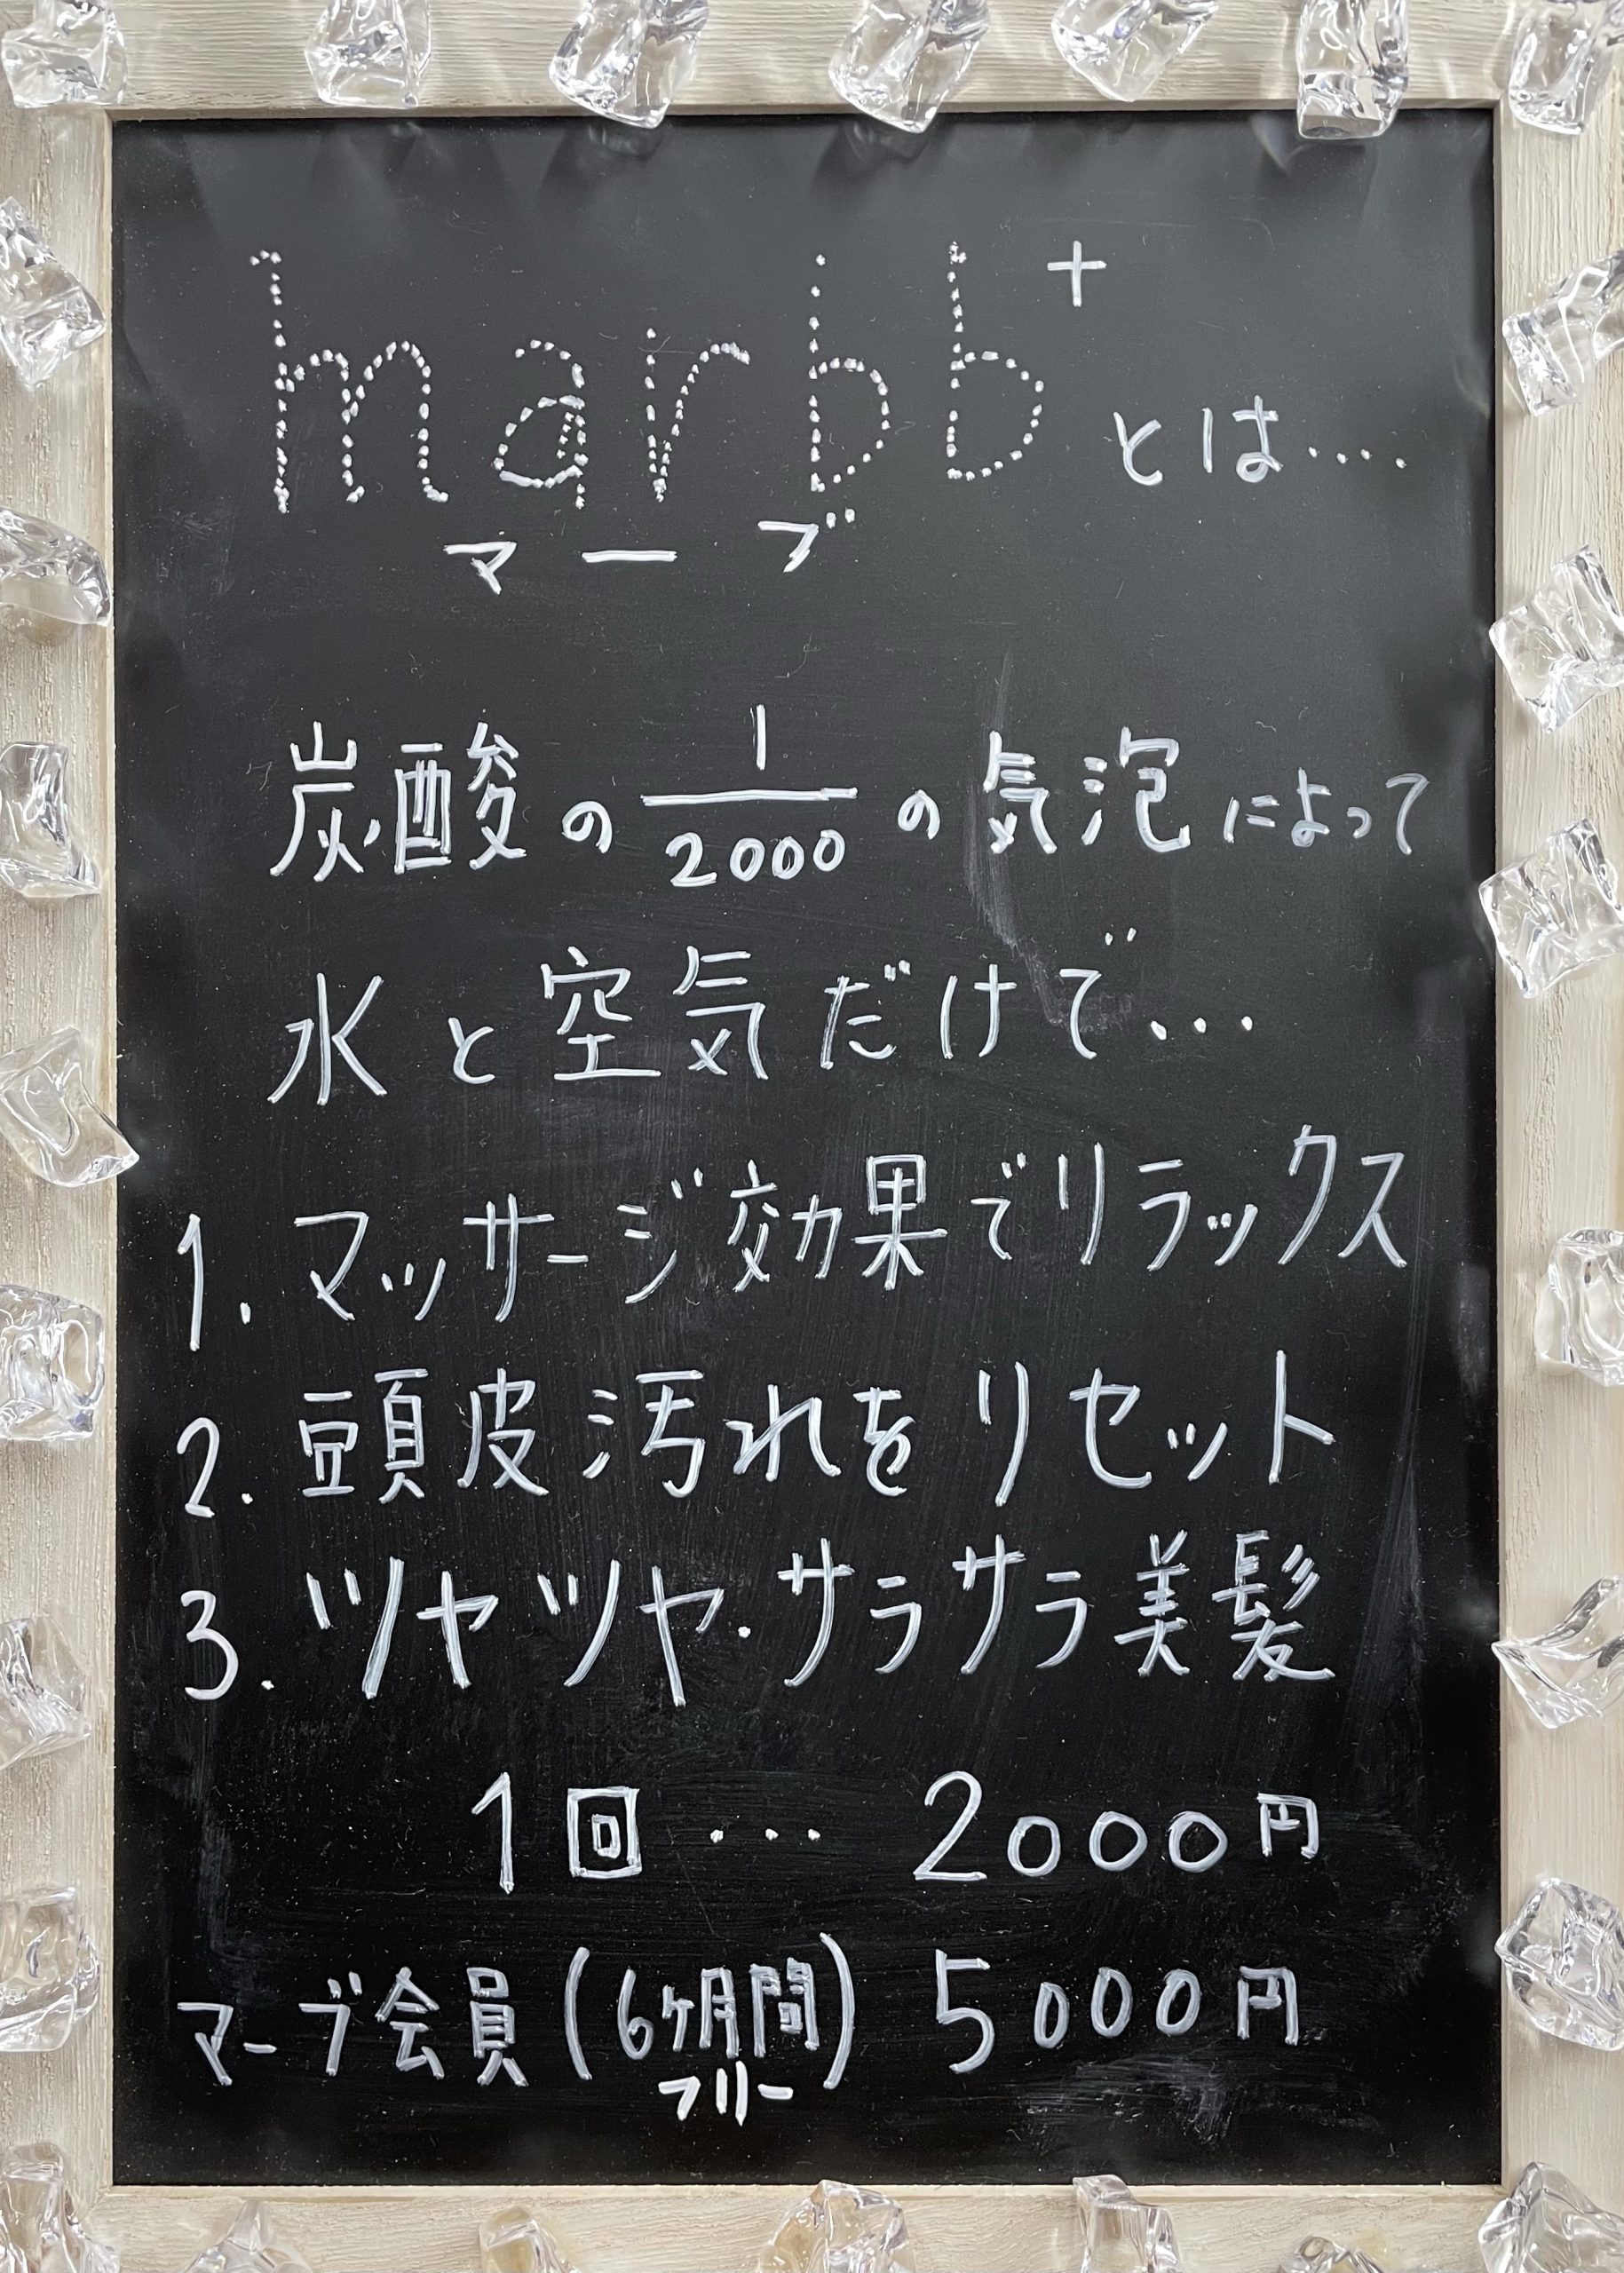 marbb⁺とは....
マーブ
炭酸の1/2000の気泡によって
水と空気だけで...
1. マッサージ効果でリラックス
2. 頭皮汚れをリセット
3. ツヤツヤ・サラサラ美髪
1回... 2000円
マーブ会員(6ヶ月間) 5000円
フリー